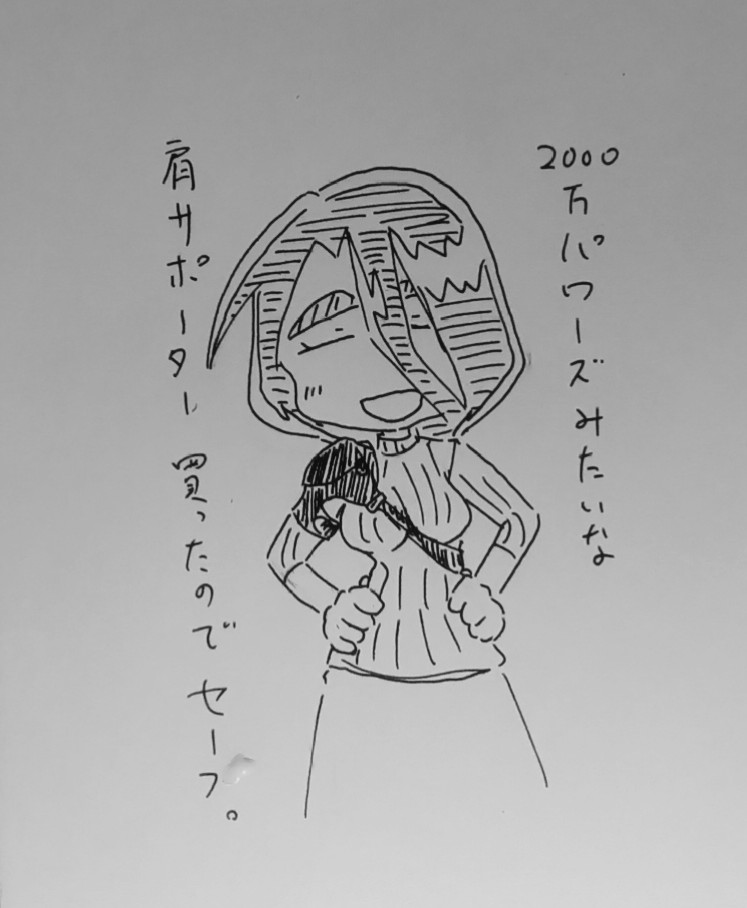 2000万パワーズみたいな
肩サポーター買ったのでセーフ。